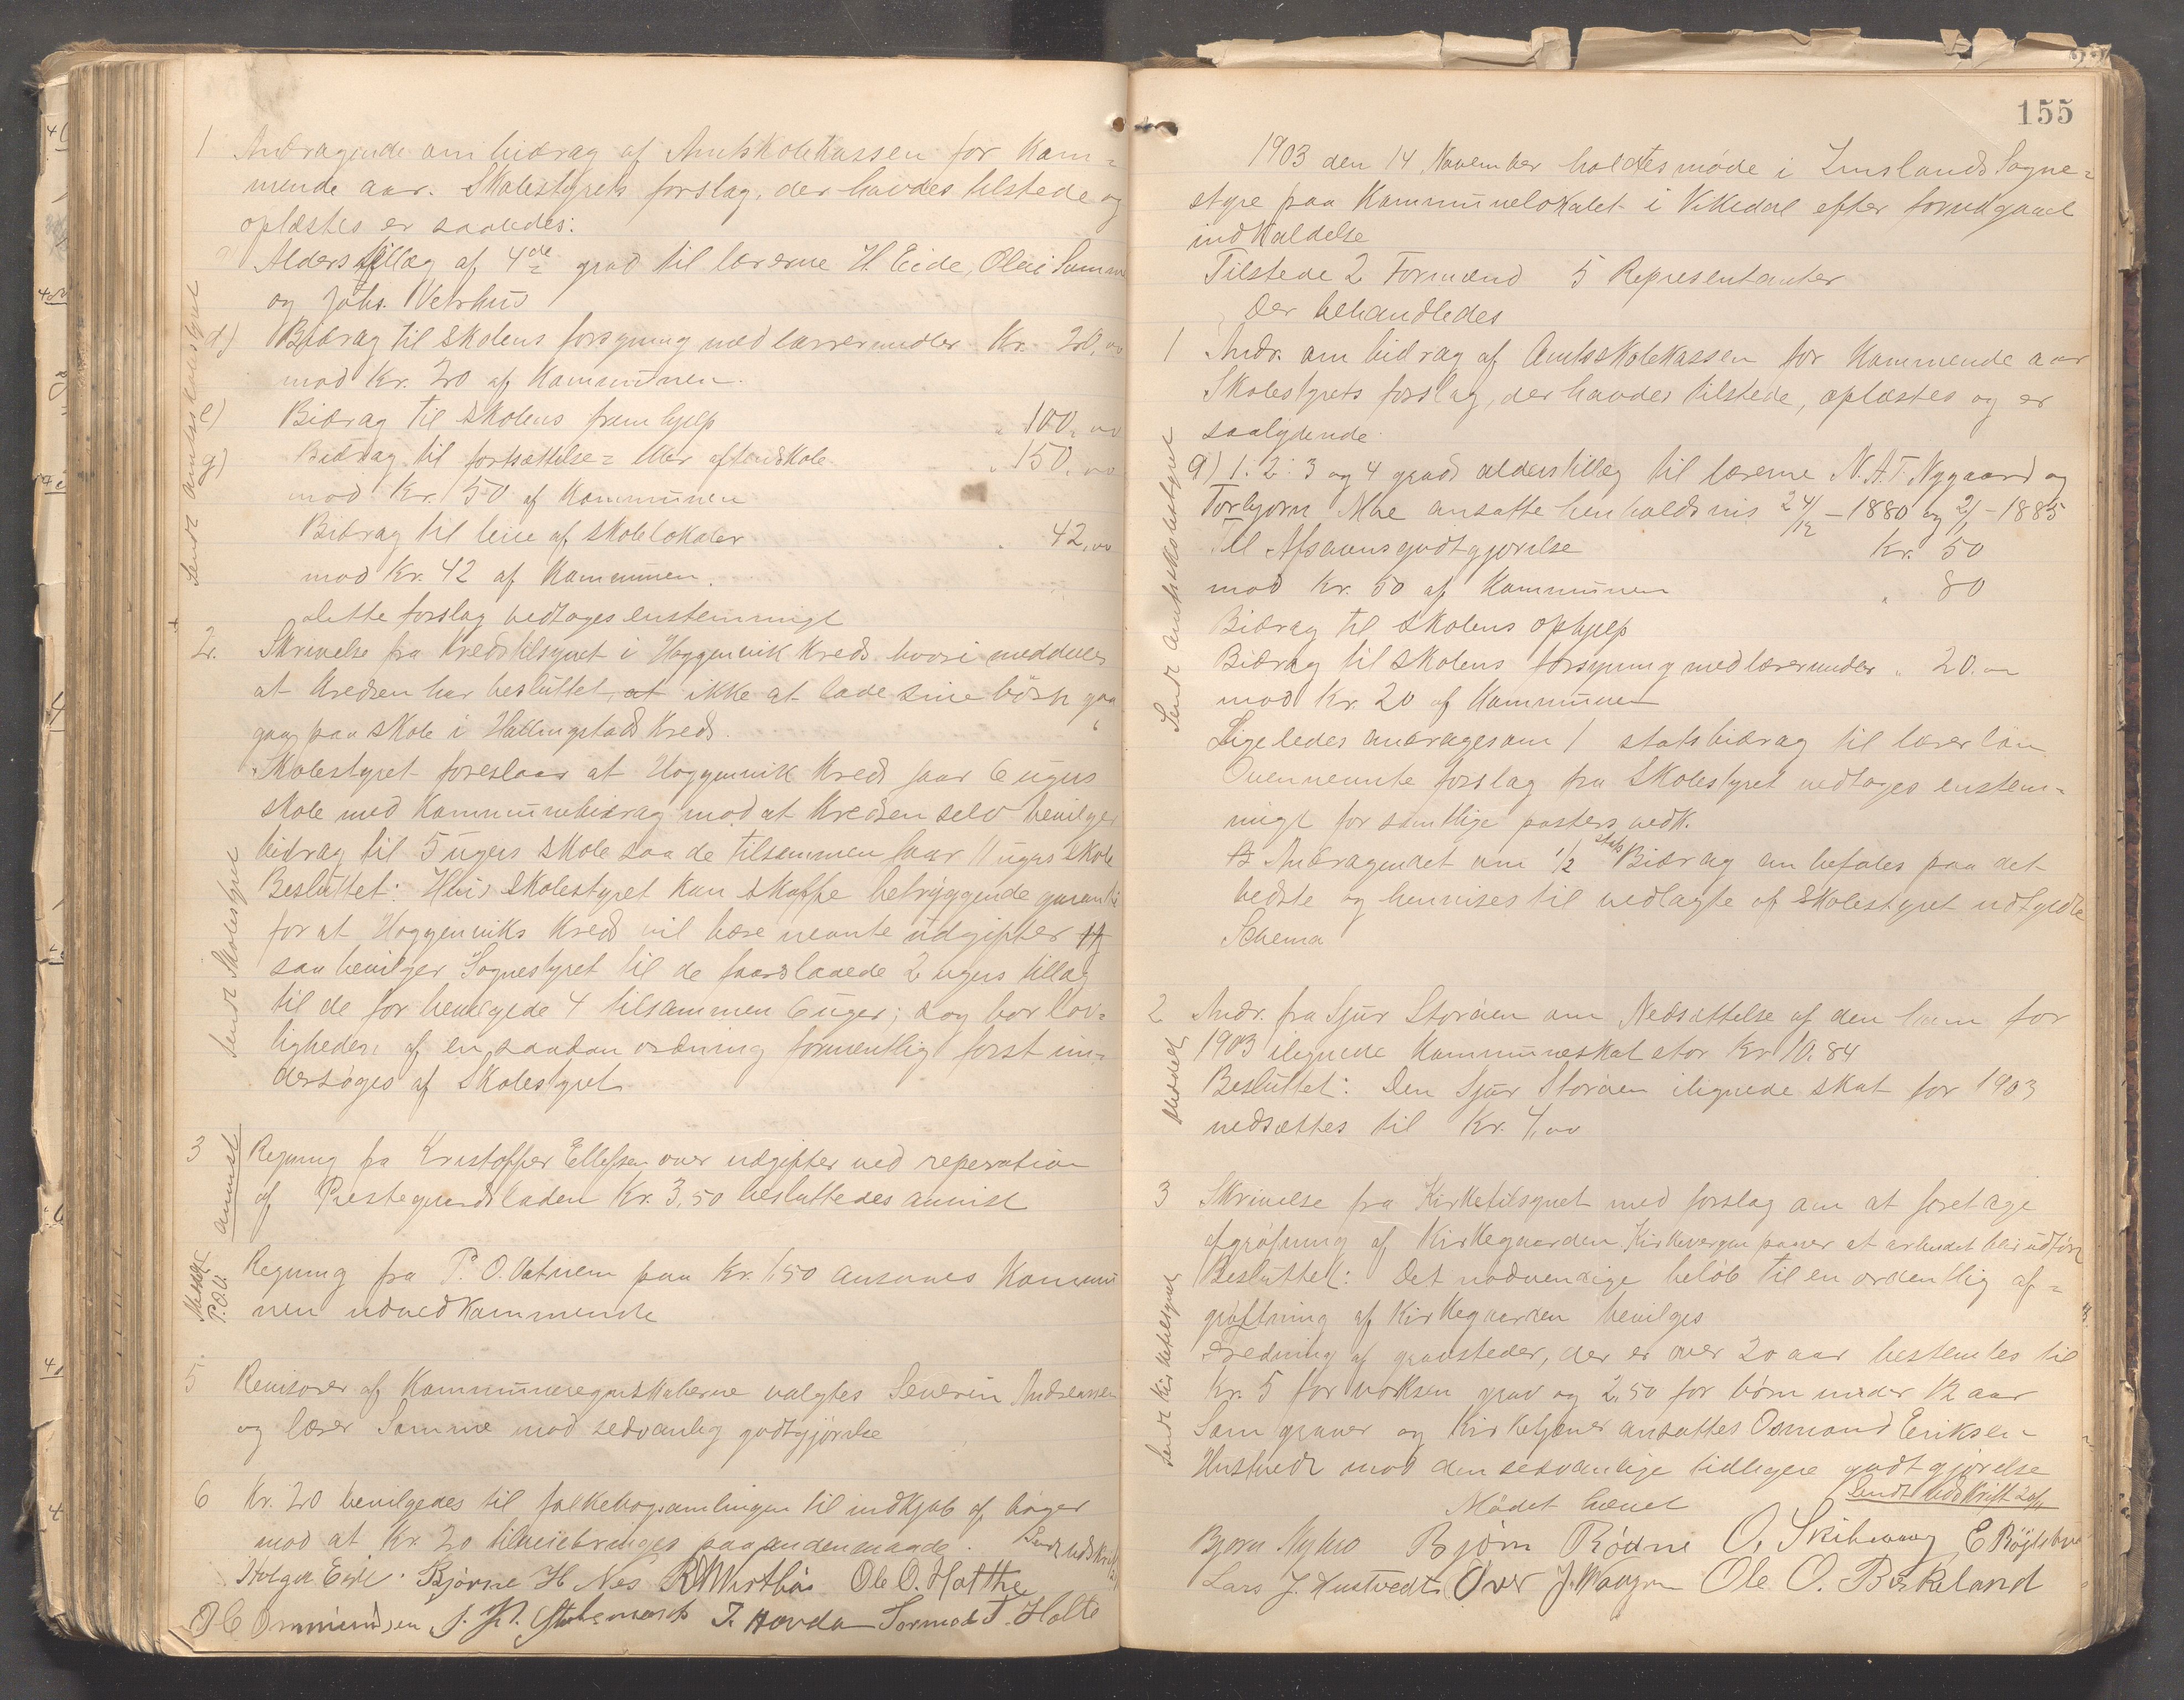 1 Andragende om bidrag af Amtskolekassen for kom=
mende aar. Skolestyrets forslag, der havdes tilstede og
oplæstes er saaledes:
Alderstillæg af 4de grad til lærerne H. Eide, Olai Somme
og Johs. Vetrhus
d) Bidrag til skolens forsyning med læreremidler Kr. 20,00
mod Kr. 20 af Kommunen.
e) Bidrag til skolens fremhjelp " 100,00
g) Bidrag til fortsættelse= eller aftenskole " 150,00
mod Kr. 50 af Kommunen
Bidrag til leie af skolelokaler " 42,00
mod Kr. 42 af Kommunen.
Dette forslag vedtoges enstemmigt
Sendt amtsskolestyret
2. Skrivelse fra Kredstilsynet i Hoggenvik Kreds hvori meddeles
at Kredsen har besluttet, at ikke at lade sine börn gaa
gaa paa skole i Hallingstad Kreds.
Skolestyret foreslaar at Hoggenvik Kreds faar 6 ugers
skole med Kommunebidrag mod at Kredsen selv bevilger
bidrag til 5 ugers skole saa de tilsammen faar 11 ugers skole
Besluttet: Hvis Skolestyret kan skaffe betryggende garanti
for at Hoggenviks Kreds vil bære nevnte udgifter
saa bevilger Sognestyret til de foreslaaede 2 ugers tillæg
til de før bevilgede 4 tilsammen 6 uger; dog bør lov=
ligheden af en saadan ordning formentlig først un=
dersøges af Skolestyret
Sendt Skolestyret
3 Regning fra Kristoffer Ellefsen over udgifter ved reperation
af Prestegaardsladen Kr. 3,50 besluttedes anvist
anvist
Regning fra P. O. Vatnem paa Kr. 1,50 ansaaes Kommu
nen uvedkommende
Meddelt P.O.V.
5 Revisorer af Kommuneregnskaberne valgtes Severin Andreassen
og lærer Somme mod sedvanlig godtgjørelse
6 Kr. 20 bevilgedes til folkebogsamlingen til indkjøb af bøger
mod at Kr. 20 tilveiebringes paa anden maade. Sendt Udskrift
Holger Eide Bjørne H Nes Ole O. Hatthe
O C Ommundsen T. Hovda Tormod T. Holte
155
1903 den 14 November holdtes møde i Imslands Sogne=
styre paa Kommunelokalet i Vikedal efter forudgaaet
indkaldelse
Tilstede 2 Formænd 5 Representanter
Der behandledes
1 Andr. om bidrag af Amtsskolekassen for Kommende aar
Skolestyrets forslag, der havdes tilstede, oplæstes og er
saalydende
a) 1. 2. 3 og 4 grads alderstillæg til lærerne N. A. T. Nygaard og
Torbjørn Moe ansatte henholdsvis 24/12 – 1880 og 2/1 – 1885
Til Afsavnsgodtgjørelse Kr. 50
mod Kr. 50 af Kommunen " 80
Bidrag til skolens ophjelp
Bidrag til skolens forsyning med læremidler " 20.00
mod Kr. 20 af Kommunen
Ligeledes andrages om 1 statsbidrag til lærerløn
Ovennevnte forslag fra Skolestyret vedtoges enstem=
migt for samtlige posters vedk.
Andragendet om 1/2 stats Bidrag anbefales paa det
bedste og henvises til vedlagte af Skolestyret udfyldte
Schema
Sendt amtsskolestyret
2 Andr. fra Sjur Storåen om Nedsættelse af den ham for
1903 ilignede Kommuneskat stor Kr 10.84
Besluttet: Den Sjur Storåen ilignede skat for 1903
nedsættes til Kr. 4,00
Meddelt
3 Skrivelse fra Kirketilsynet med forslag om at foretage
afgrøfning af Kirkegaarden. Kirkevergen paaser at arbeidet blir udført
Besluttet: Det nødvendige beløb til en ordentlig af=
grøftning af Kirkegaarden bevilges
Fredning af gravsteder, der er over 20 aar bestemtes til
Kr. 5 for voksen grav og 2,50 for børn under 12 aar
Som graver og Kirketjener ansattes Osmund Eriksen
Hustvedt mod den sedvanlige tidligere godtgjørelse
Sendt Kirketilsynet
Mødet hævet Sendt Udskrift
Bjørn Nybro Bjørn Rødne O. Skibevaag E Røgelstve
Lars J. Hustvedt Over J. Vaagen Ole O. Birkeland